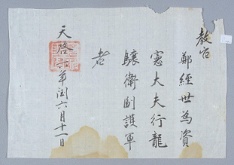 教旨
鄭經世為資
憲大夫行龍
驤衛副護軍
者
天啓六年閏六月十一日